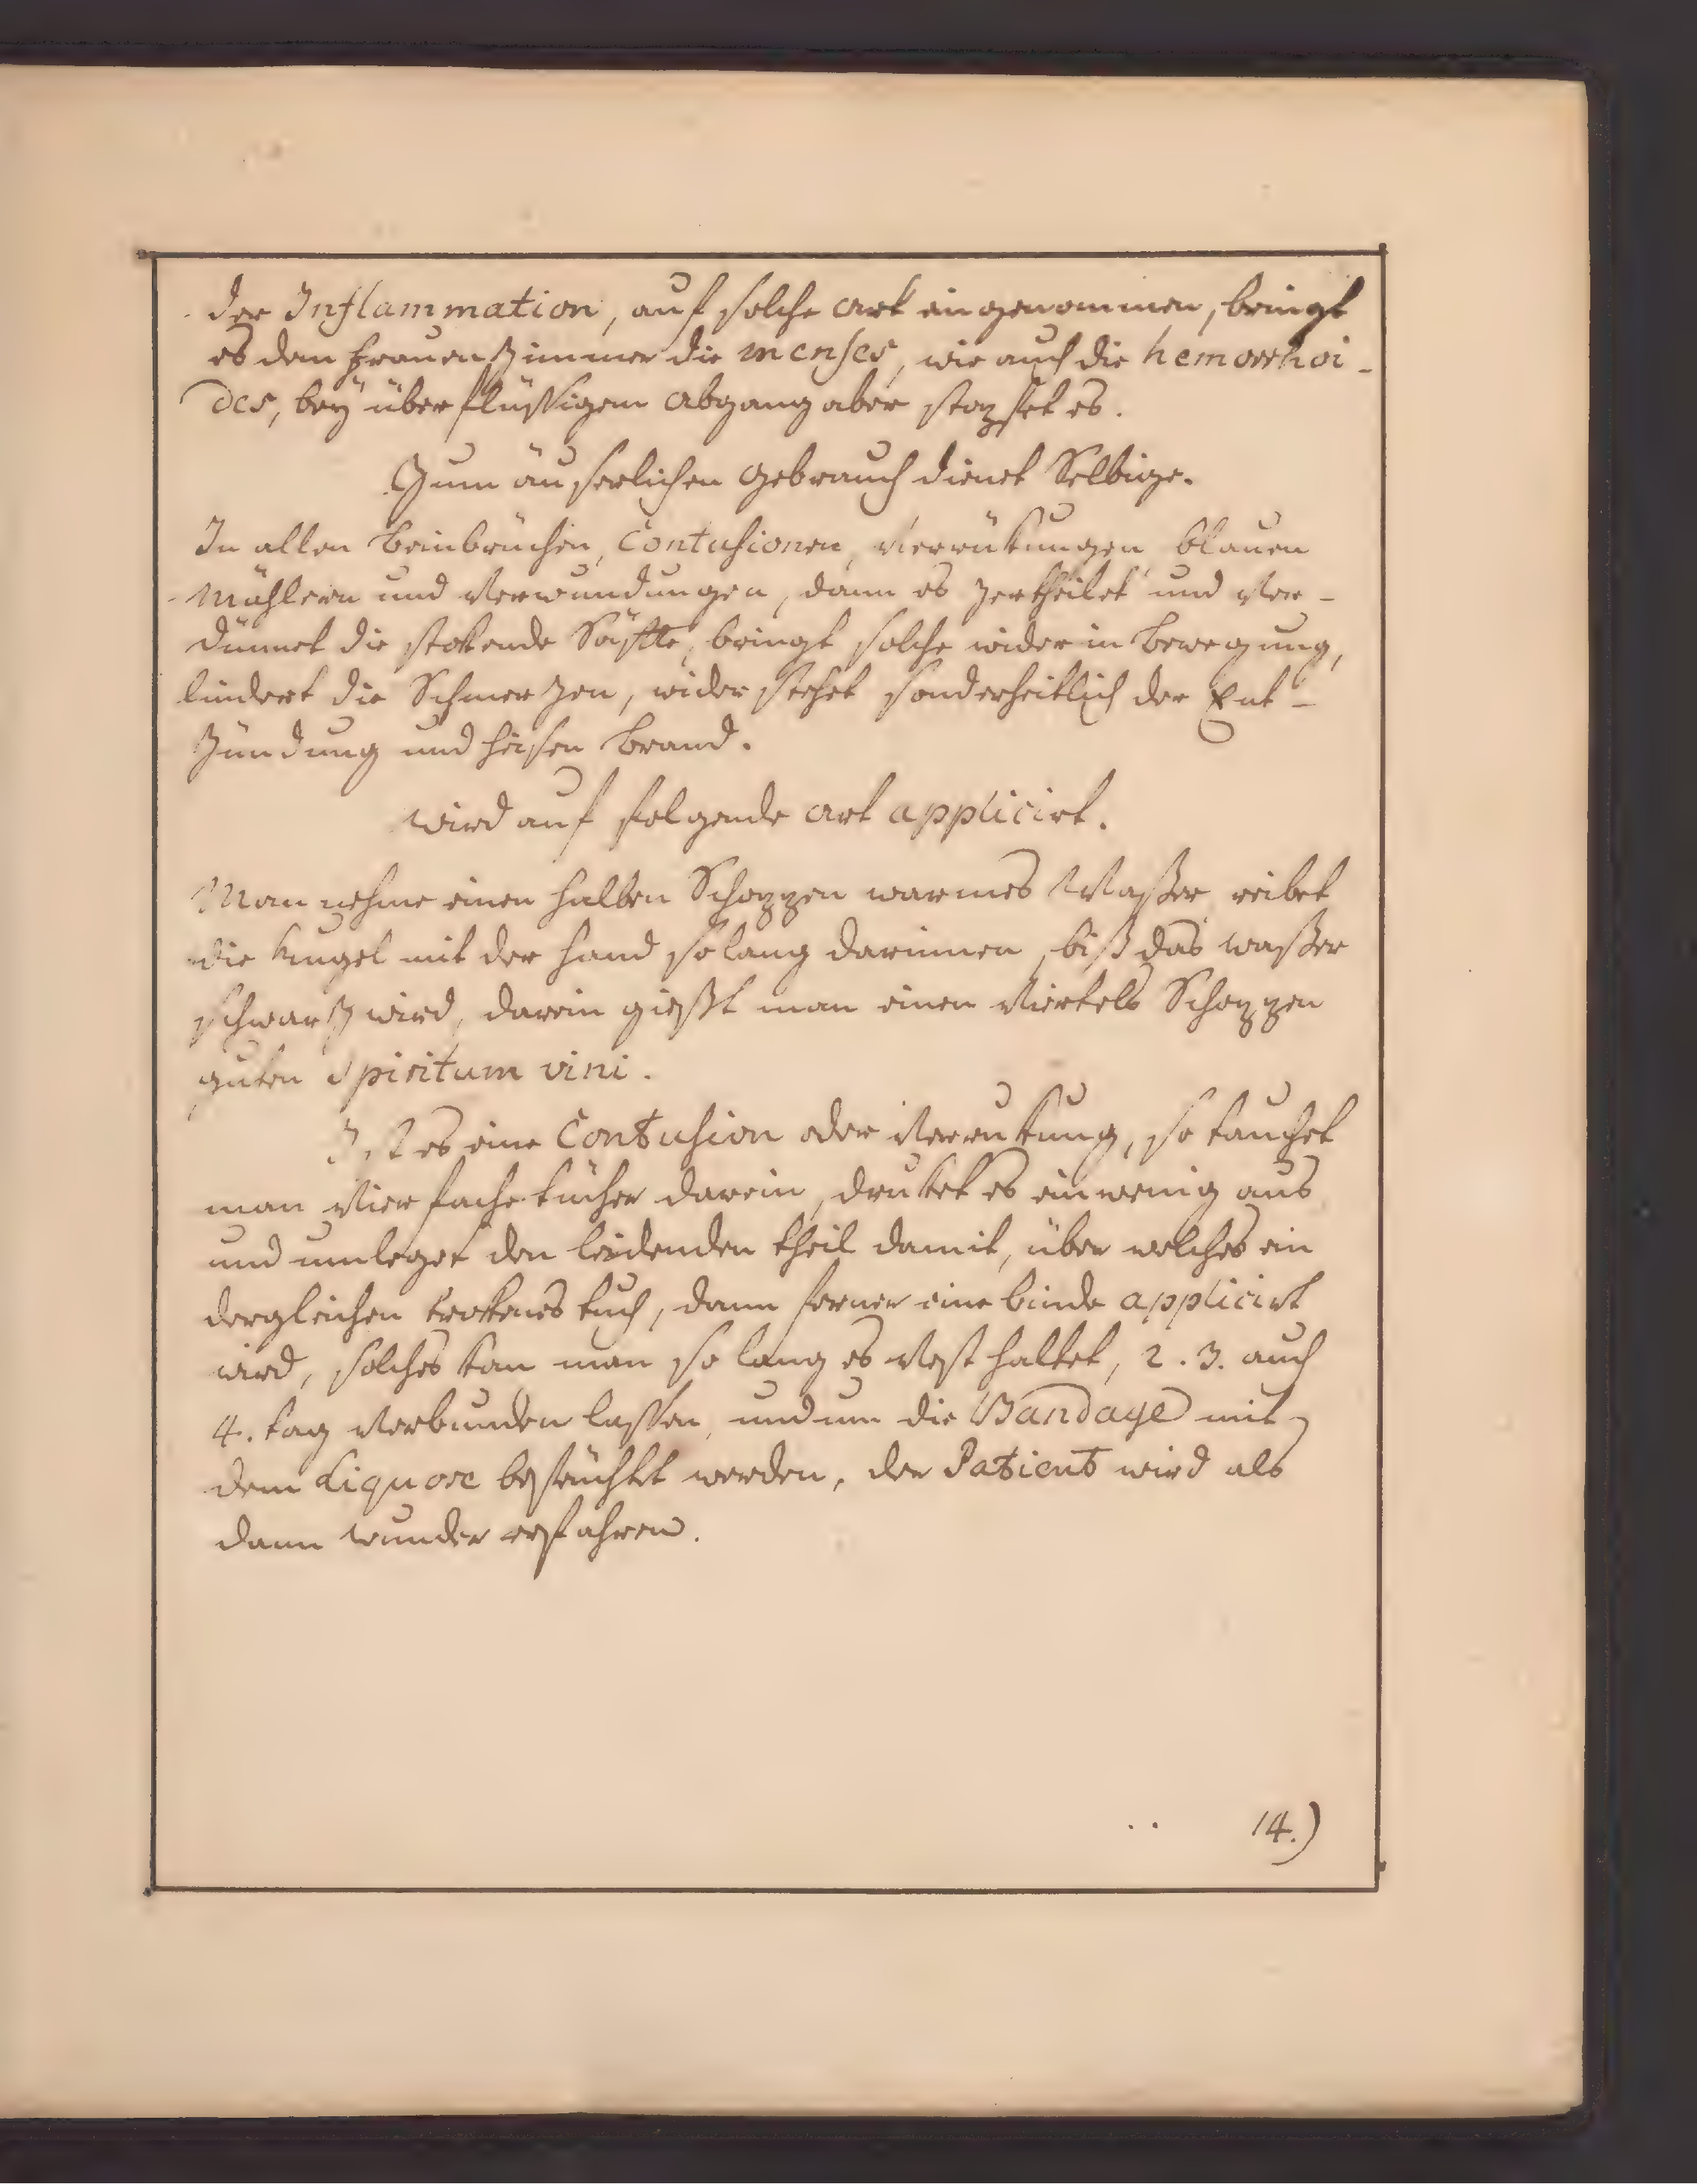 der Inflammation, auf solche art eingenommen, bringt
es dem frauenzimmer die menses, wie auch die hemorrhoi-
des, beÿ überflüssigem abgang aber stopfet es.
Zum äuserlichen gebrauch dienet Selbige.
In allen beinbrüchen, Contusionen, Verrükungen, blauen
Mählern und Verwundungen, dann es zertheilet und Ver-
dünnet die stokende Säffte, bringt solche wider in bewegung,
lindert die Schmerzen, widerstehet sonderheitlich der Ent-
zündung und heisen brand.
wird auf folgende art applicirt.
Man nehme einen halben Schoppen warmes Waßer, reibet
die kugel mit der hand so lang darinnen, biß das waßer
schwartz wird, darein gießt man einen Viertels Schoppen
guten Spiritum vini.
Ist es eine Contusion oder Verrukung, so tauchet
man Vierfache tücher darein, druket es ein wenig aus
und umleget den leidenden theil damit, über welches ein
dergleichen trokenes tuch, dann ferner eine binde applicirt
wird, solches kan man so lang es Vest haltet, 2. 3. auch
4. tag Verbunden lassen, und um die Bandage mit
dem Liquore befeuchtet werden, der Patient wird als
dann wunder erfahren.
14.)